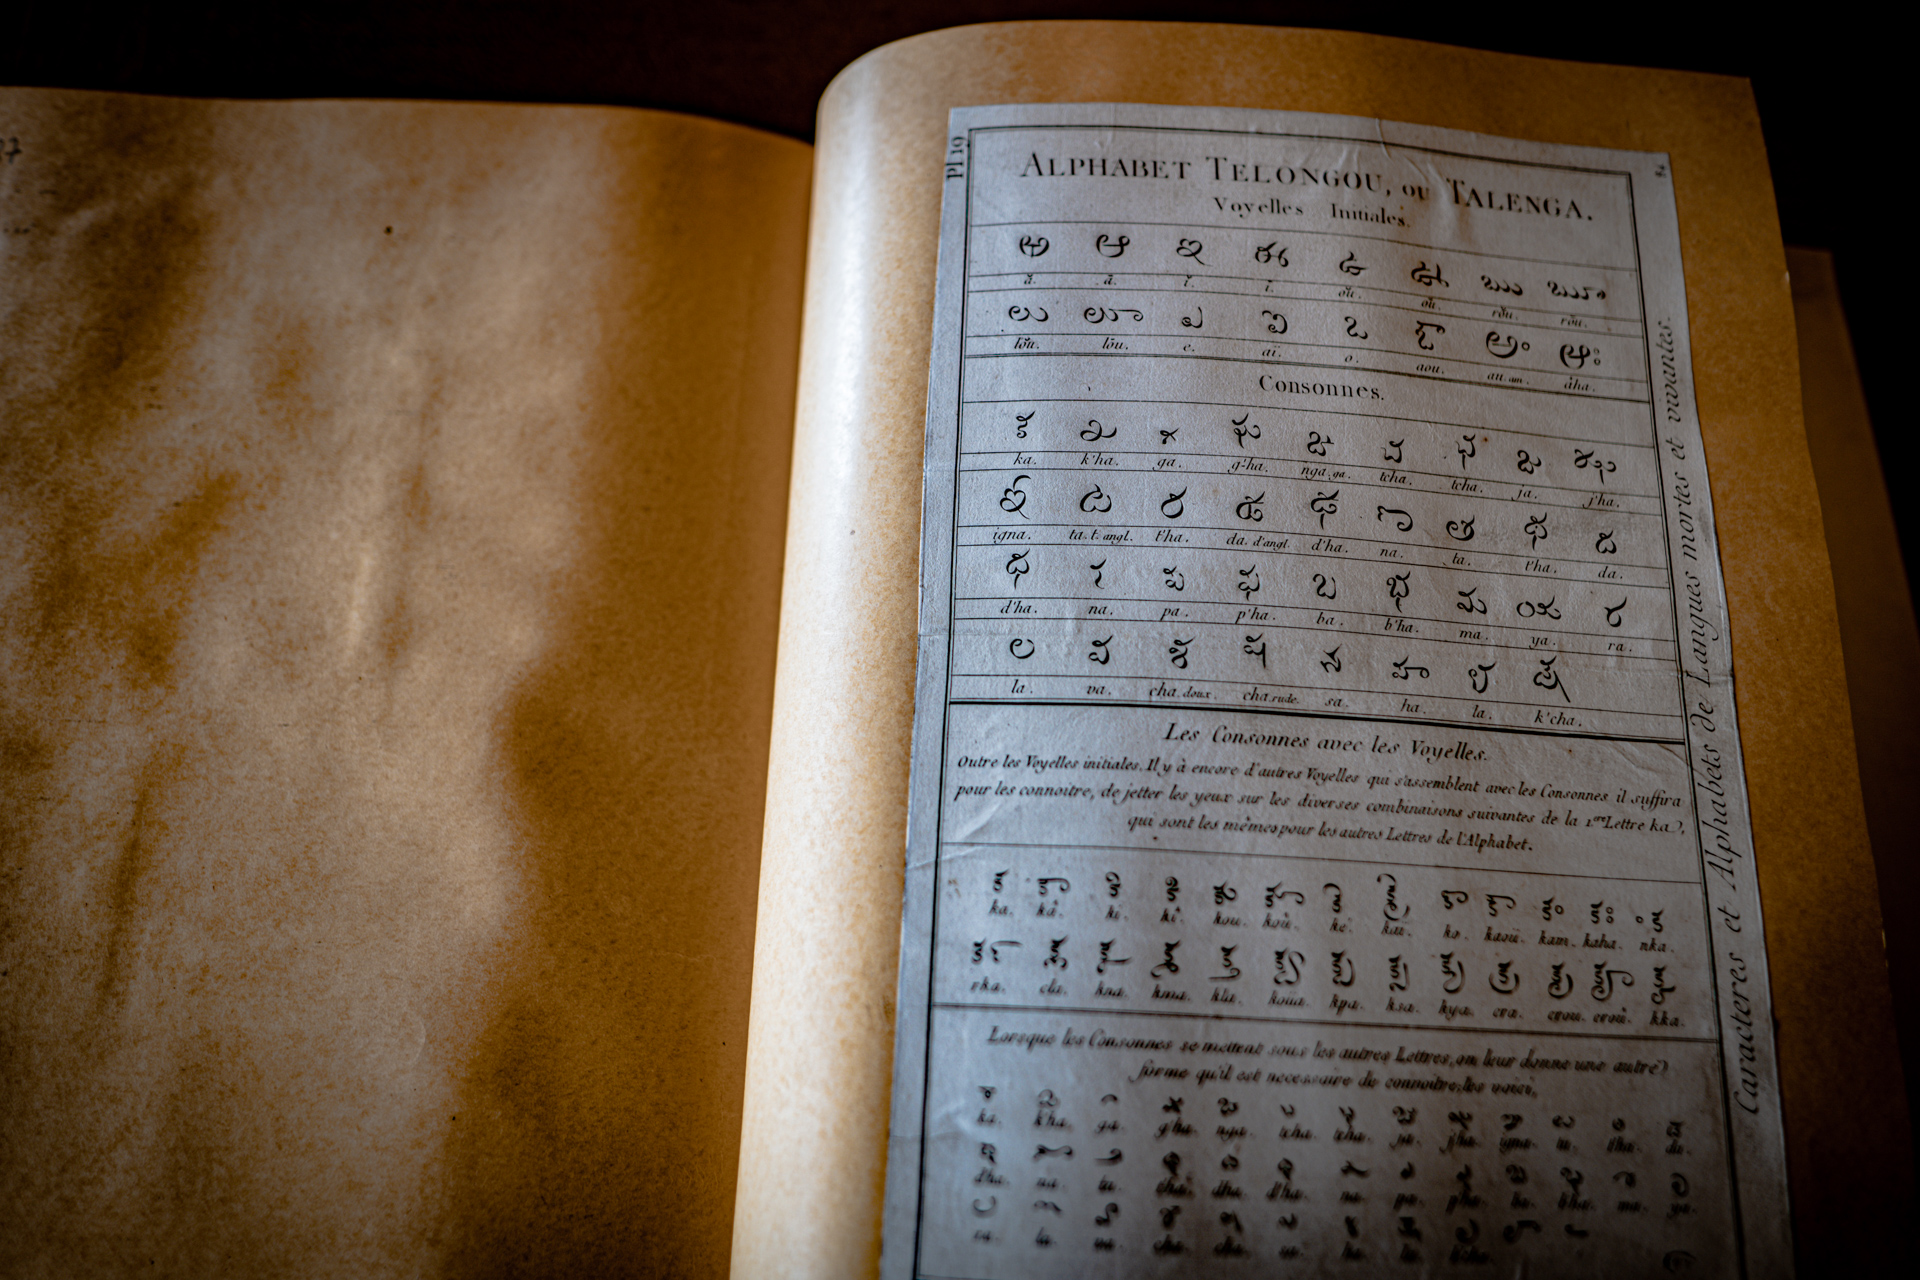 Pl 19
ALPHABET TELONGOU, ou TALENGA.
Voyelles Initiales.
అ ఆ ఇ ఈ ఉ ఊ ఋ ౠ
ă. ā. ĭ. ī. oŭ. oū. rŏu. rōu.
ఌ ౡ ఎ ఐ ఒ ఔ అం ఆః
lŏu. lōu. e. aï. o. aou. an.am. âha.
Consonnes.
క ఖ గ ఘ ఙ చ ఛ జ ఝ
ka. k'ha. ga. g'ha. nga.ga. tcha. tcha. ja. j'ha.
ఞ ట ఠ డ ఢ ణ త థ ద
igna. ta.t.angl. t'ha. da.d'angl. d'ha. na. ta. t'ha. da.
ధ న ప ఫ బ భ మ య ర
d'ha. na. pa. p'ha. ba. b'ha. ma. ya. ra.
ల వ శ ష స హ ళ క్ష
la. va. cha.doux. cha.rude. sa. ha. la. k'cha.
Les Consonnes avec les Voyelles.
Outre les Voyelles initiales. Il y à encore d'autres Voyelles qui s'assemblent avec les Consonnes il suffira
pour les connoitre, de jetter les yeux sur les diverses combinaisons suivantes de la 1.ere Lettre ka,
qui sont les mêmes pour les autres Lettres de l'Alphabet.
ka. kâ. ki. kî. kou. koû. ke. kai. ko. kaou. kam. kaha. nka.
rka. cla. kna. kma. kla. koua. kpa. ksa. kya. cra. crou. croû. kka.
Lorsque les Consonnes se mettent sous les autres Lettres, on leur donne une autre
forme qu'il est necessaire de connoitre, les voici.
ka. k'ha. ga. g'ha. nga. tcha. tcha. ja. j'ha. igna. ta. t'ha. da.
d'ha. na. ta. t'ha. dha. d'ha. na. pa. p'ha. ba. b'ha. ma. ya.
ra. la. va. cha. cha. sa. ha. la.
Caracteres et Alphabets de Langues mortes et vivantes.